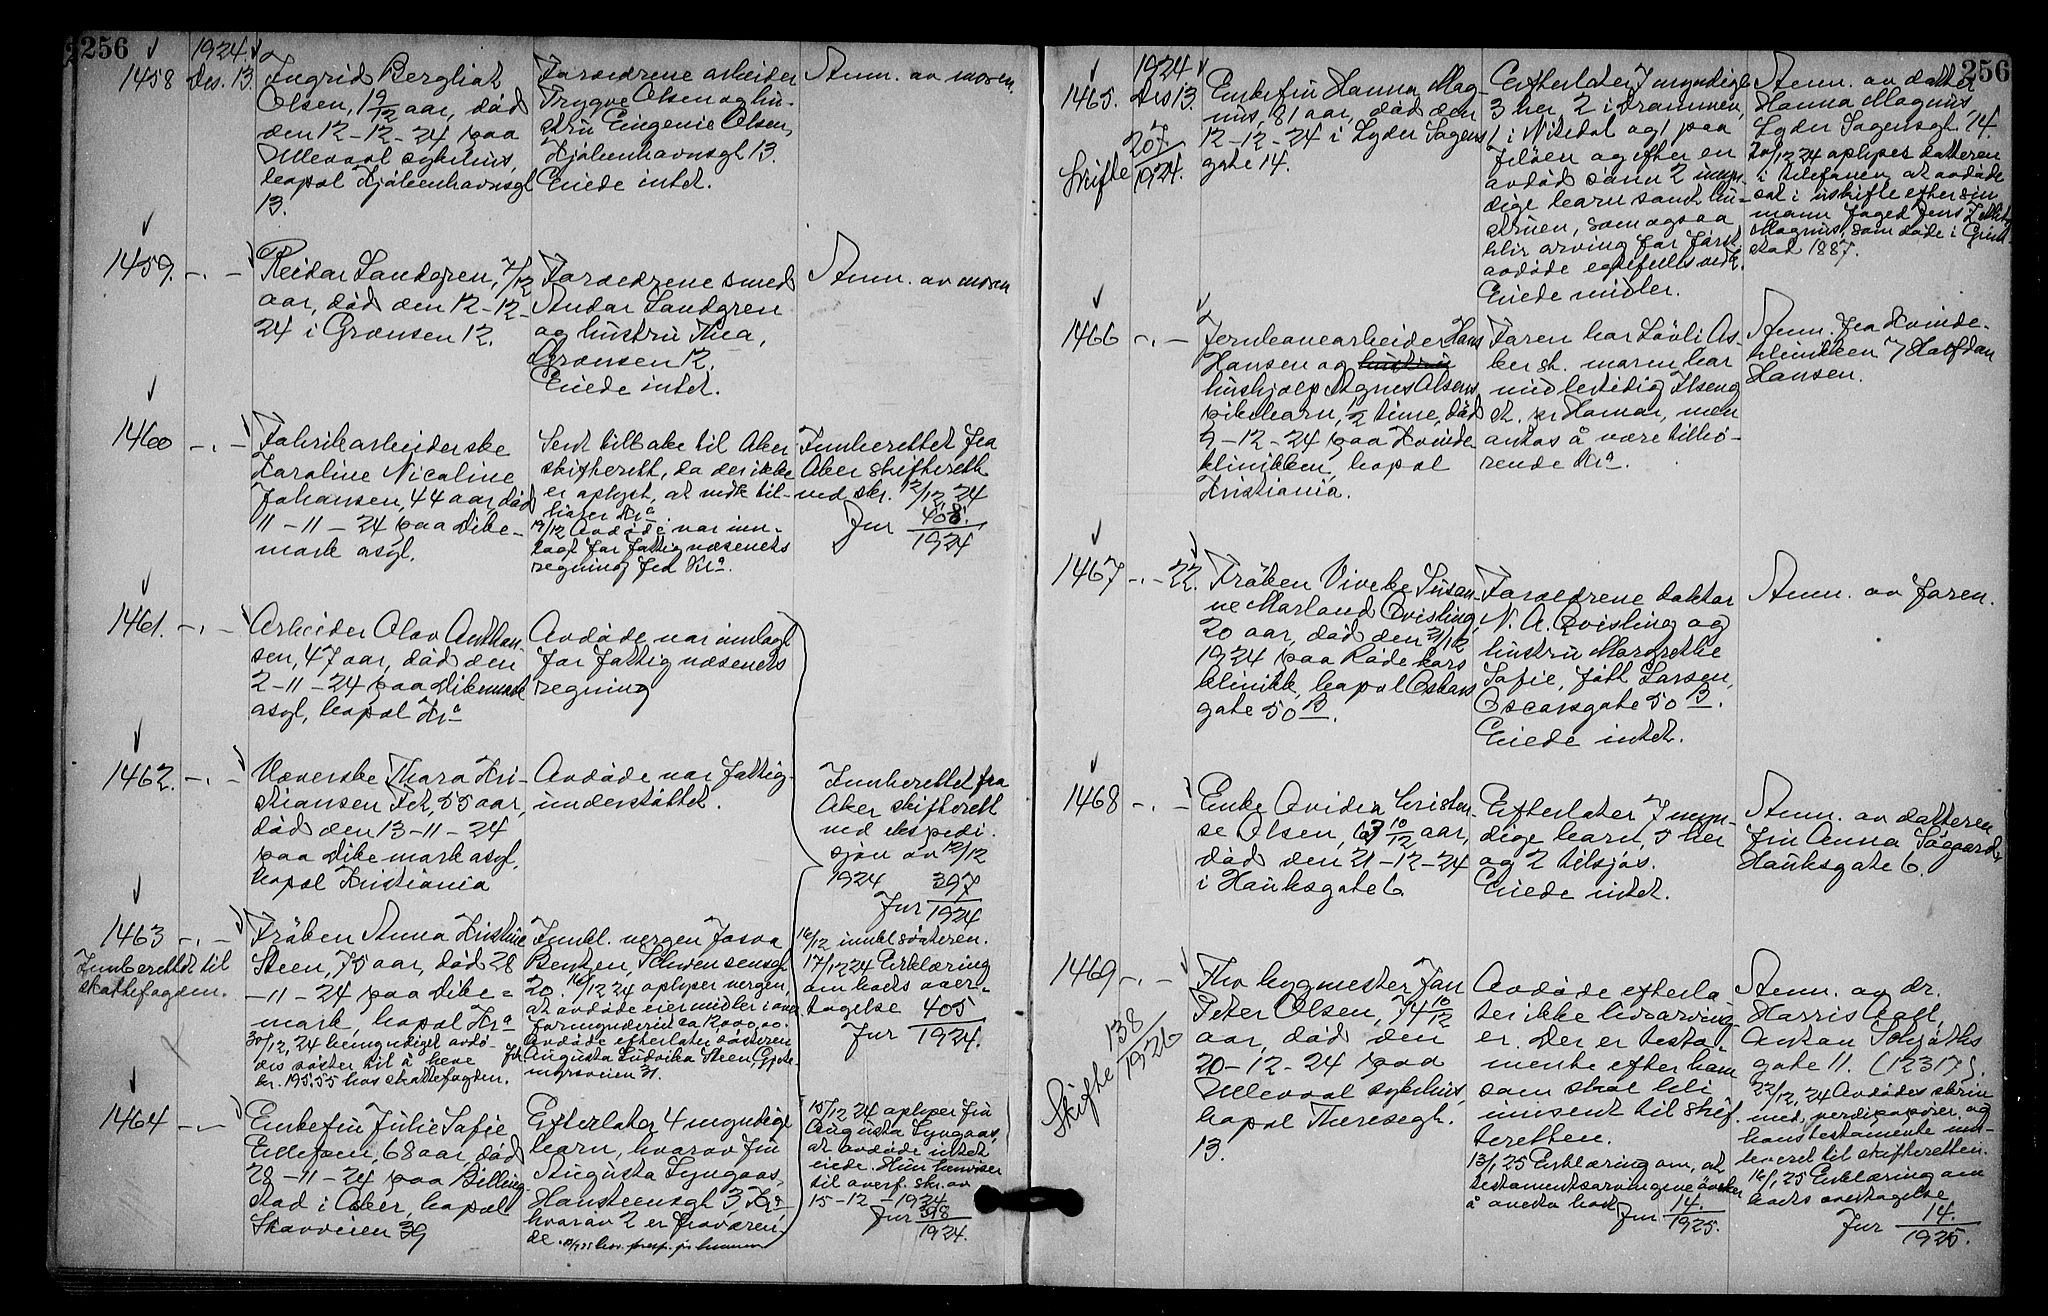 256
1924.
1458 Des. 13.
Ingrid Bergliot
Olsen, 19/12 aar, død
den 12-12-24 paa
Ullevaal sykehus,
bopæl Kjøbenhavnsgt
13.
Forældrene arbeider
Trygve Olsen og hu-
stru Eugenie Olsen,
Kjøbenhavnsgt. 13.
Eiede intet.
Anm. av moren.
1459. -.- 
Reidar Sandgren, 7/12
aar, død den 12-12-
24 i Grænsen 12.
Forældrene smed
Andor Sandgren
og hustru Thea,
Grænsen 12.
Eiede intet.
Anm. av moren
1460 -.-
Fabrikarbeiderske
Karoline Nicoline
Johansen, 44 aar, død
11-11-24 paa Dike-
mark asyl.
Sent tilbake til Aker
skifterett, da der ikke
er oplyst, at vedk. til-
hører Kr.a
19/12 Avdøde var inn-
lagt for fattigvæsenets
regning fra Kr.a.
Innberettet fra
Aker skifterett
ved skr. 12/12 24
Jnr 408.
1924
1461. -.-
Arbeider Olav Anthon-
sen, 47 aar, død den
2-11-24 paa Dikemark
asyl, bopæl Kr.a
Avdøde var innlagt
for fattigvæsenets
regning
1462. -.-
Væverske Thora Kri-
stiansen Fet, 55 aar,
død den 13-11-24
paa Dikemark asyl,
bopæl Kristiania
Avdøde var fattig-
understøttet.
Innberettet fra
Aker skifterett
ved ekspedi-
sjon av 12/12
1924 397
Jnr 1924
1463 -.-
Innberettet til
skattefogden.
Frøken Anna Kristine
Steen, 75 aar, død 28
-11-24 paa Dike-
mark, bopæl Kr.a
30/12 24 bemyndiget avdø-
des søster til å heve
kr. 195.55 hos skattefogden.
Innkl. vergen Josva
Bentzen, Schwensensgt
20. 16/12 24 oplyser vergen,
at avdøde eier midler i over
formynderiet ca 12,000,00.
Avdøde efterlater søsteren
Augusta Ludvika Steen, Gjøte-
myrsveien 31.
16/12 innkl søsteren.
17/12 24 Erklæring
om bods over-
tagelse 405
Jnr 1924.
1464 -.-
Enkefru Julie Sofie
Ellefsen, 68 aar, død
28-11-24 paa Billing-
stad i Asker, bopæl
Skovveien 39
Efterlater 4 myndige
barn, hvorav fru
Augusta Lyngaas,
Hansteensgt 3, Kr.a,
hvorav 2 er fraværen-
de.
15/12 24 oplyser fru
Augusta Lyngaas,
at avdøde intet
eiede. Hun henviser
til overf. skr. av
15-12-1924
Jnr 398
1924.
256
1924
1465. Des 13.
Skifte 207/1924.
Enkefru Hanna Mag-
nus, 81 aar, død den
12-12-24 i Lyder Sagens
gate 14.
Efterlater 7 myndige
3 her 2 i Drammen,
1 i Nitedal og 1 paa
Jeløen og efter en
avdød sønn 2 myn-
dige barn samt hu-
struen, som ogsaa
blir arving for først
avdøde ektefelles vedk.
Eiede midler.
Anm. av datter
Hanna Magnus,
Lyder Sagensgt. 14
20/12 24 oplyser datteren
i telefonen, at avdøde
sat i uskifte efter sin
mann foged Jens
Magnus, som døde i Grim
stad 1887.
1466 -.-
Jernbanearbeider Hans
Hansen og hustru
hushjælp Agnes Olsens
pikebarn, 1/2 time, død
9-12-24 paa Kvinde
klinikken, bopæl
Kristiania.
Faren bor Løvli As-
ker st. moren bor
midlertidig Ilseng
st. pr Hamar, men
antas å være tilhø-
rende Kr.a.
Anm. fra Kvinde-
klinikken v/ Halfdan
Hansen.
1467 -.- 22.
Frøken Viveke Susan-
ne Morland Qvisling,
20 aar, død den 21/12
1924 paa Røde kors
klinikk, bopæl Oskars
gate 50 B.
Forældrene doktor
N. A. Qvisling og
hustru Margrethe
Sofie, født Larsen,
Oscarsgate 50 B.
Eiede intet.
Anm. av faren.
1468 -.-
Enke Ovidia Kristen-
se Olsen, 67 10/12 aar,
død den 21-12-24
i Hauksgate 6
Efterlater 7 myn-
dige barn, 5 her
og 2 tilsjøs.
Eiede intet.
Anm. av datteren
fru Anna Søgaard,
Hauksgate 6.
1469 -.-
Skifte 138/1926
Tho bygmester Jan
Peter Olsen, 74 10/12
aar, død den
20-12-24 paa
Ullevaal sykehus,
bopæl Theresegt.
13.
Avdøde efterla-
ter ikke livsarving-
er. Der er testa-
mente efter ham
som skal bli
innsent til skif-
teretten.
13/1 25 Erklæring om, at
testamentsarvingene ønsker
å overta bod
Jnr 14.
1925.
Anm. av dr.
Harris Aall,
Anton Schjøths
gate 11. (12317).
22/12 24 Avdødes skrin
med verdipapirer, og
hans testamente inn-
leveret til skifteretten.
16/1 25 Erklæring om
bods overtagelse
Jnr 14.
1925.